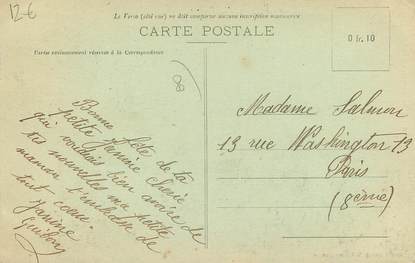 12€
Le Verso (côté vue) ne doit comporter aucune inscription manuscrite
CARTE POSTALE
0 fr. 10
Partie exclusivement réservée à la Correspondance
Bonne fête de ta
petite Janine cherie
qui voudrait bien avoire de
tes nouvelles ma petite
maman t'embrasse de
tout coeur.
Janine
Madame Salmon
13 rue Washington 13
Paris
(8ème)